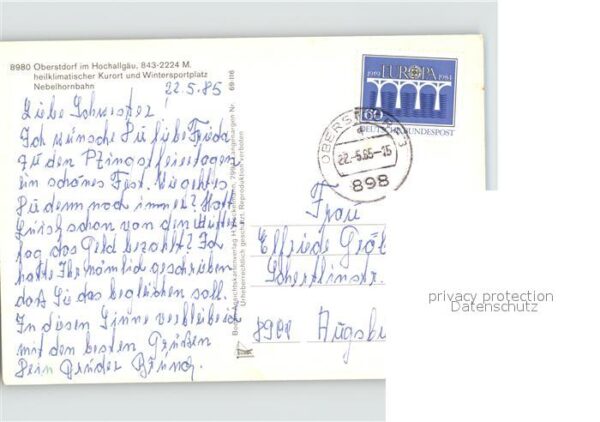 8980 Oberstdorf im Hochallgäu, 843-2224 M.
heilklimatischer Kurort und Wintersportplatz
Nebelhornbahn
69 116
22.5.85
Liebe Schwester!
Ich wünsche Dir liebe Frieda
zu den Pfingstfeiertagen
ein schönes Fest. Wie geht es
Dir denn noch immer? Hat
schon von den
das Geld bezahlt? Ich
hatte Ihr nämlich geschrieben
daß Sie das begleichen soll.
In diesem Sinne verbleibe ich
mit den besten Grüßen
Dein Bruder
Urheberrechtlich geschützt. Reproduktion verboten
1959 EUROPA 1984
60
DEUTSCHE BUNDESPOST
OBERSTDORF
22.-5.85-15
898
Frau
Elfriede
8900 Augsbu
privacy protection
Datenschutz